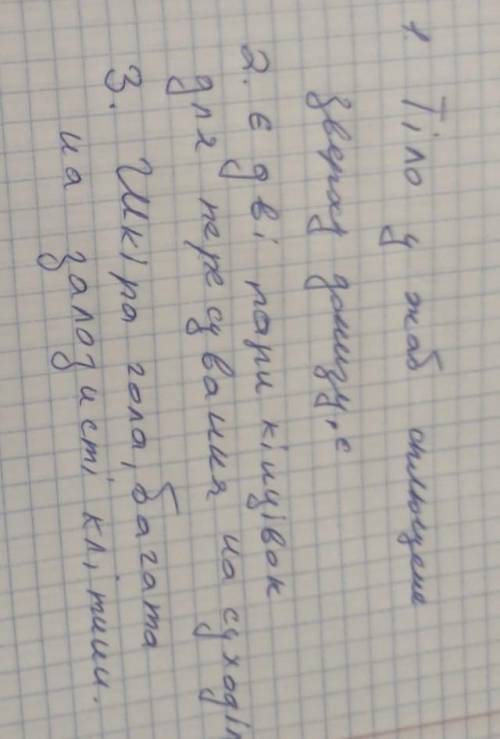 1. Тіло у жаб сплющене
зверху донизу, є
2. є дві пари кінцівок
для пересування на суходіл
3. Шкіра гола, багата
на залозисті клітини.